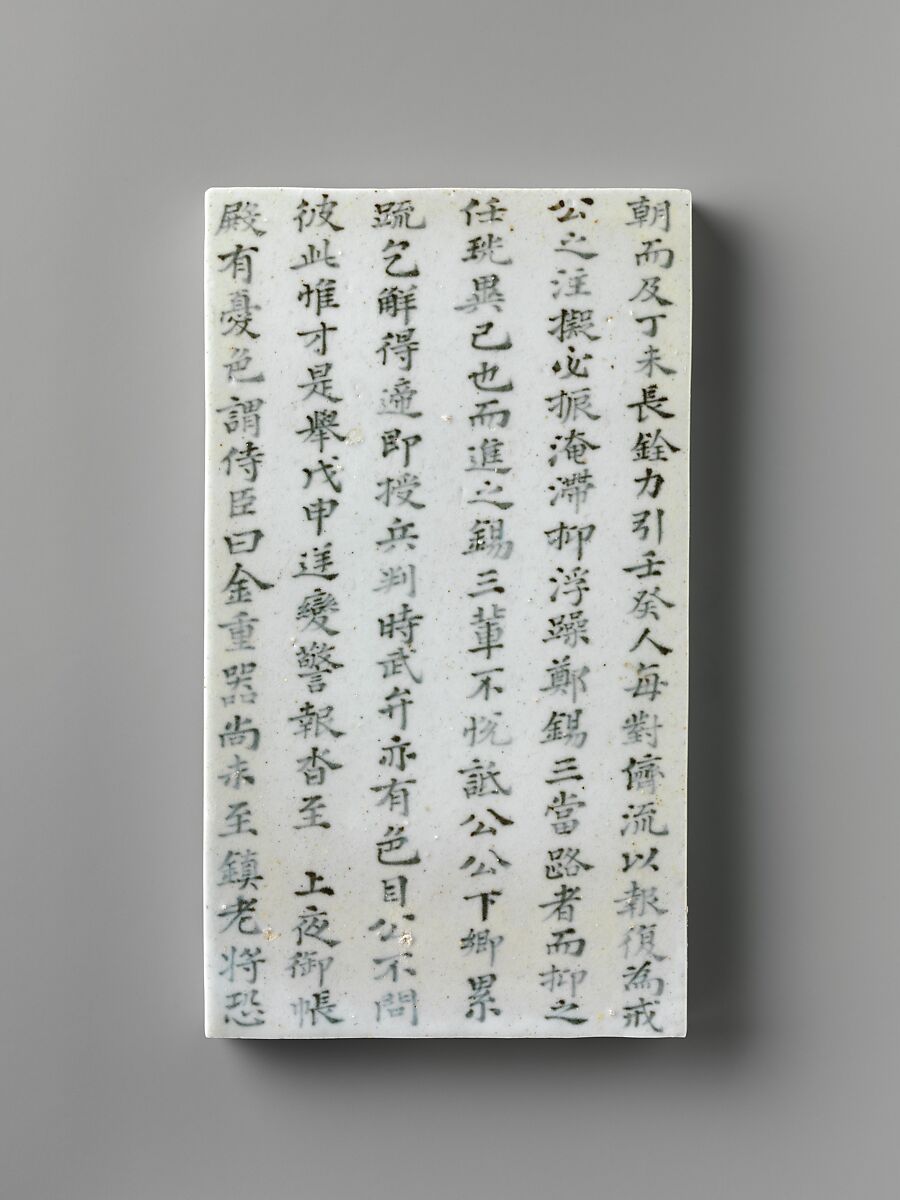 朝而及丁未長銓力引壬癸人每對儕流以報復為戒
公之注擬必振淹滯抑浮躁鄭錫三當路者而抑之
任珖異己也而進之錫三輩不悅詆公公下鄉累
疏乞觧得遆即授兵判時武弁亦有色目公不問
彼此惟才是舉戊申逆變警報沓至 上夜御帳
殿有憂色謂侍臣曰金重器尚未至鎮老將恐